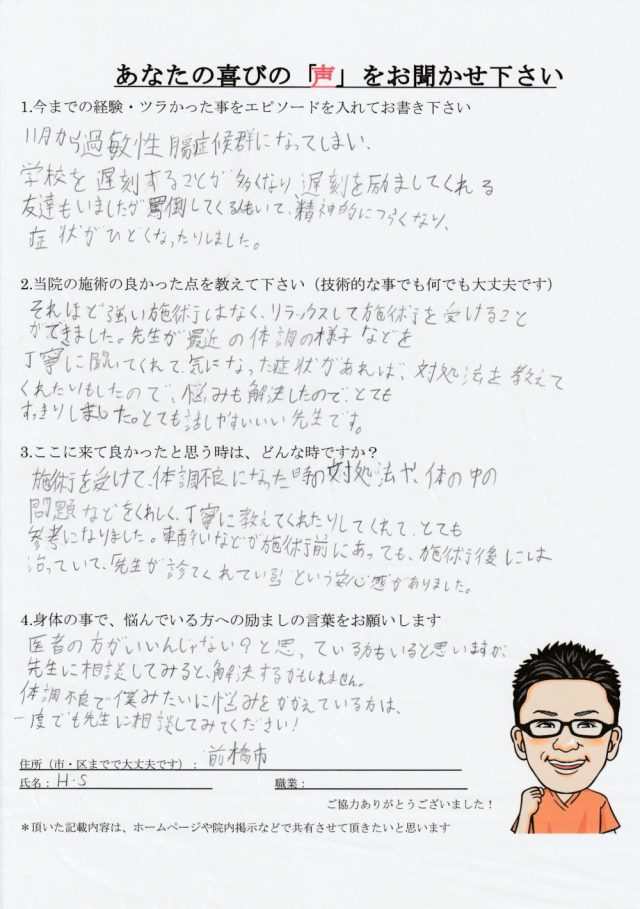 あなたの喜びの「声」をお聞かせ下さい
1.今までの経験・ツラかった事をエピソードを入れてお書き下さい
11月から過敏性腸症候群になってしまい、
学校を遅刻することが多くなり遅刻を励ましてくれる
友達もいましたが罵倒してくる人もいて、精神的につらくなり、
症状がひどくなったりしました。
2.当院の施術の良かった点を教えて下さい（技術的な事でも何でも大丈夫です）
それほど強い施術ではなく、リラックスして施術を受けること
ができました。先生が最近の体調の様子などを
丁寧に聞いてくれて、気になった症状があれば、対処法を教えて
くれたりもしたので、悩みも解決したので、とても
すっきりしました。とても話しやすいいい先生です。
3.ここに来て良かったと思う時は、どんな時ですか？
施術を受けて、体調不良になった時の対処法や、体の中の
問題などをくわしく、丁寧に教えてくれたりしてくれて、とても
参考になりました。車酔いなどが施術前にあっても、施術後には
治っていて、「先生が診てくれている」という安心感がありました。
4.身体の事で、悩んでいる方への励ましの言葉をお願いします
医者の方がいいんじゃない？と思っている方もいると思いますが、
先生に相談してみると、解決するかもしれません。
体調不良で僕みたいに悩みをかかえている方は、
一度でも先生に相談してみてください！
住所（市・区までで大丈夫です）：前橋市
氏名：H・S 職業：
ご協力ありがとうございました！
＊頂いた記載内容は、ホームページや院内掲示などで共有させて頂きたいと思います